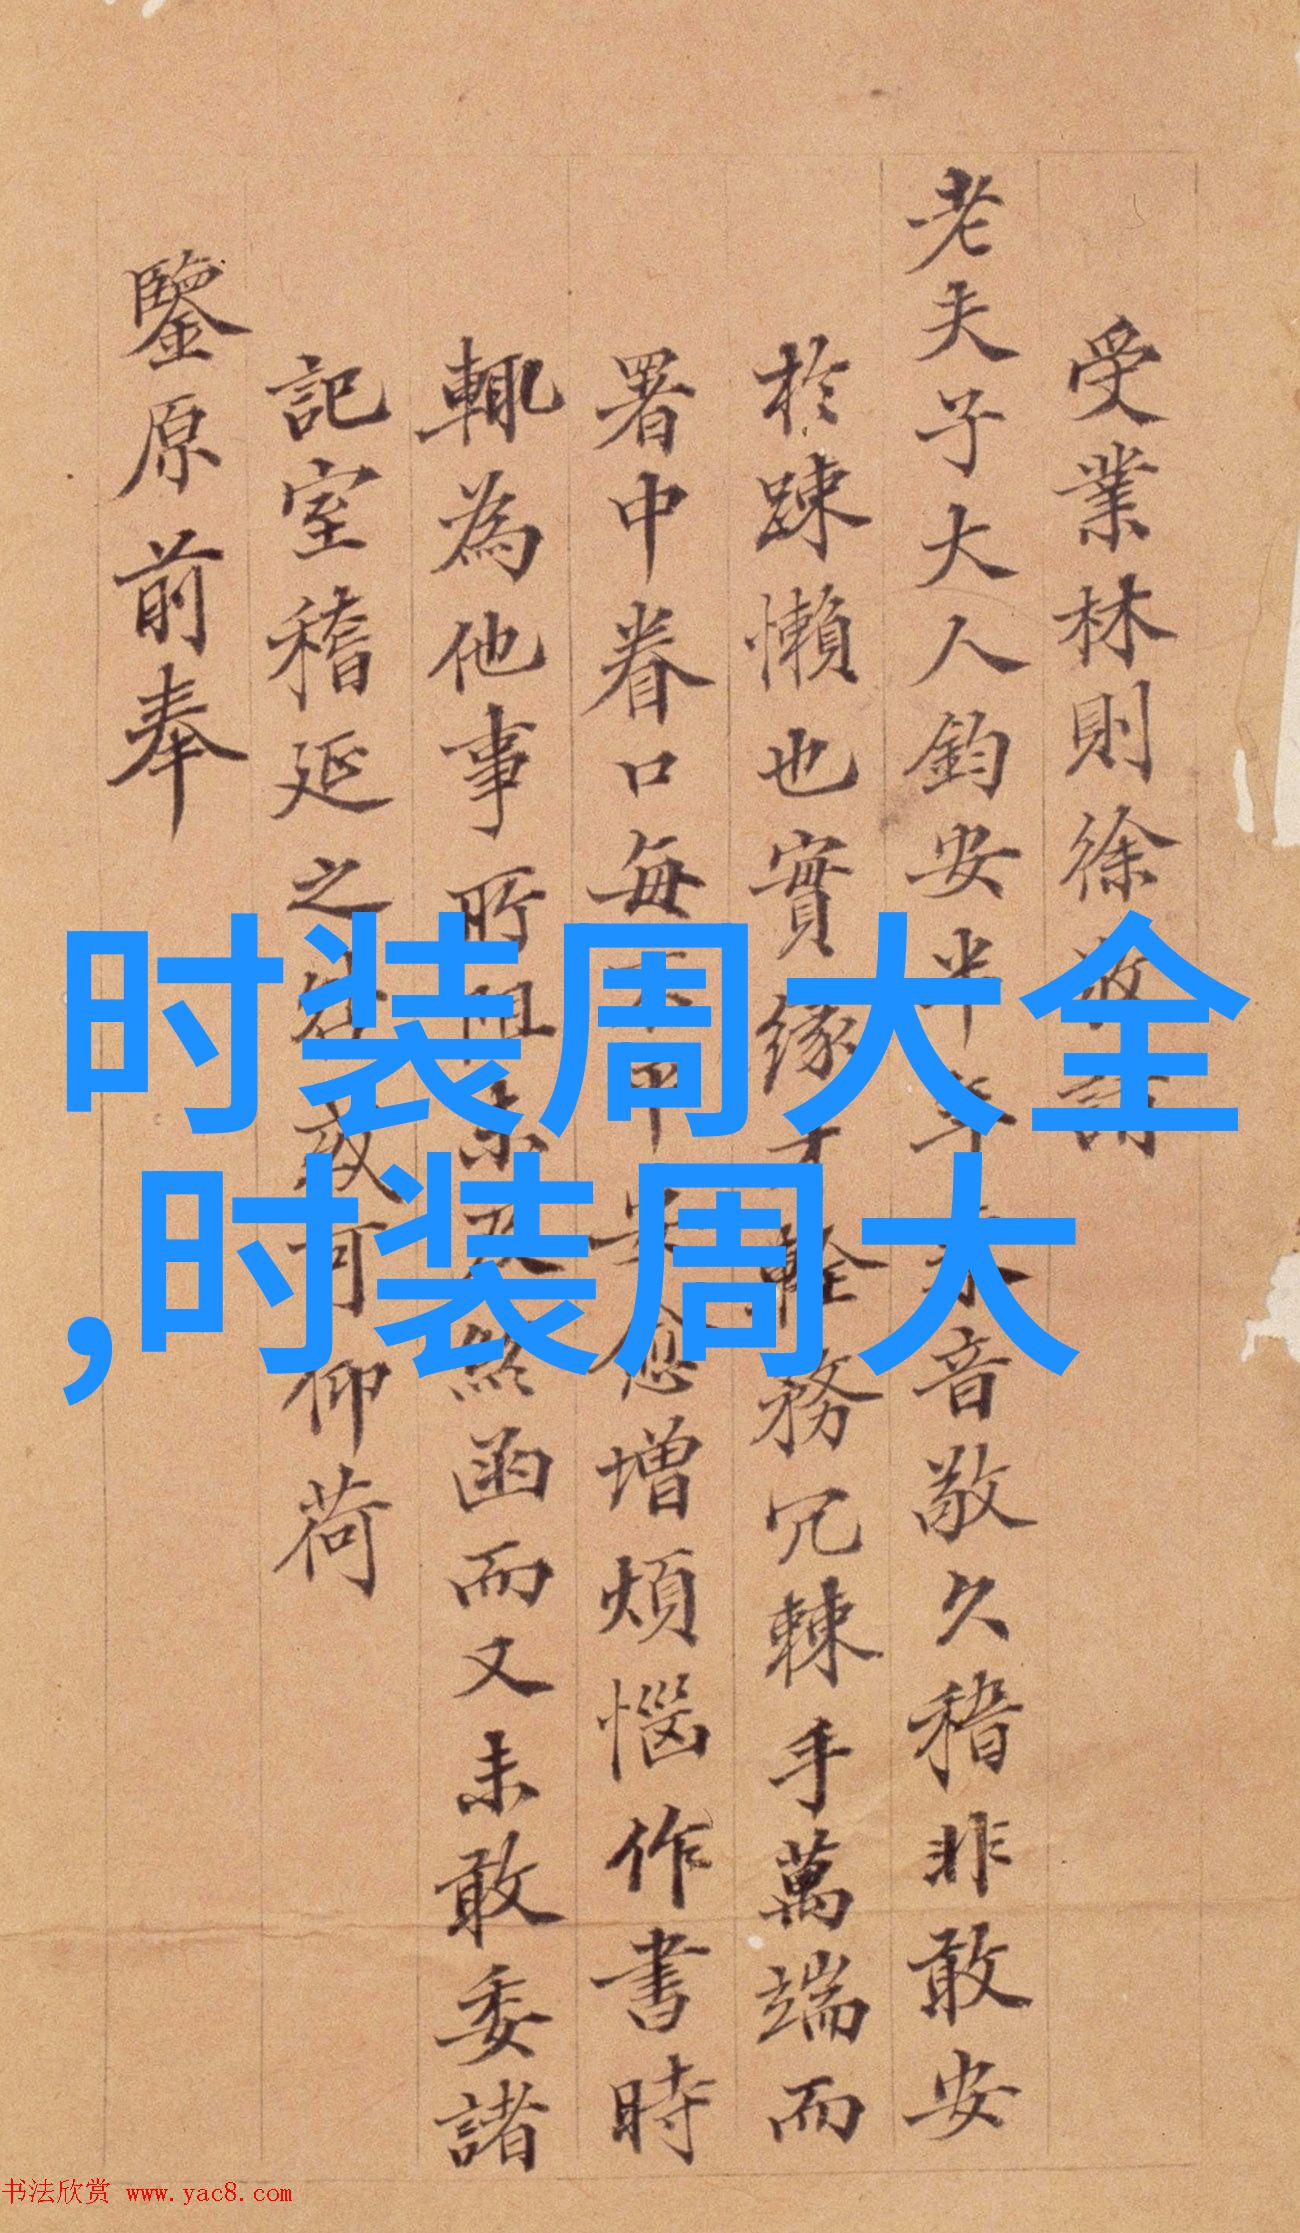 受業林則徐敬請
老夫子大人鈞安半年未音敬久稽非敢安
於踈懶也實緣才輇務冗棘手萬端而
署中眷口每不平安愈增煩惱作書時
輒為他事所阻未及終函而又未敢委諸
記室稽延之或可仰荷
鑒原前奉
时装周大全
,时装周大
书法欣赏 www.yac8.com